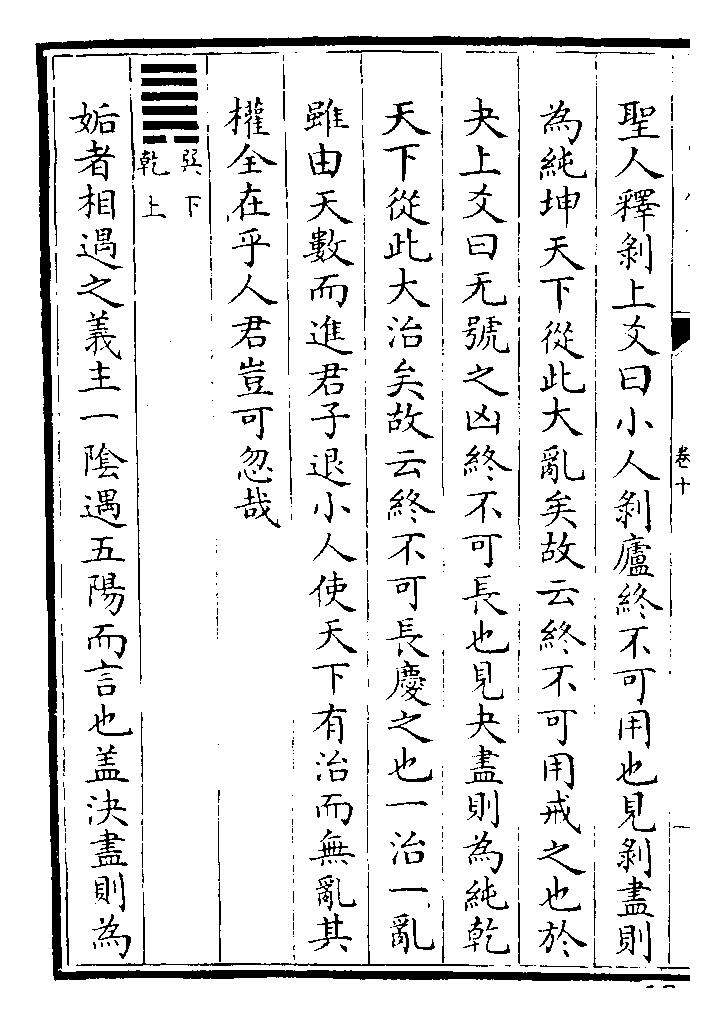 聖人釋剝上爻曰小人剝廬終不可用也見剝盡則
為純坤天下從此大亂矣故云終不可用戒之也於
夬上爻曰无號之凶終不可長也見夬盡則為純乾
天下從此大治矣故云終不可長慶之也一治一亂
雖由天數而進君子退小人使天下有治而無亂其
權全在乎人君豈可忽哉
䷫
巽下
乾上
姤者相遇之義主一陰遇五陽而言也盖決盡則為
卷十